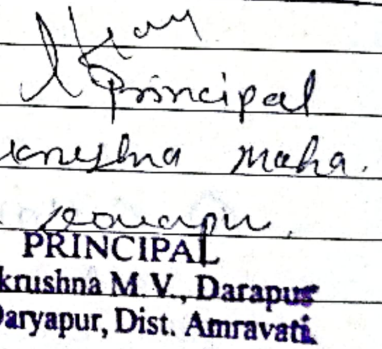 Principal
krushna Maha.
PRINCIPAL
krushna M.V., Darapur
Daryapur, Dist. Amravati.